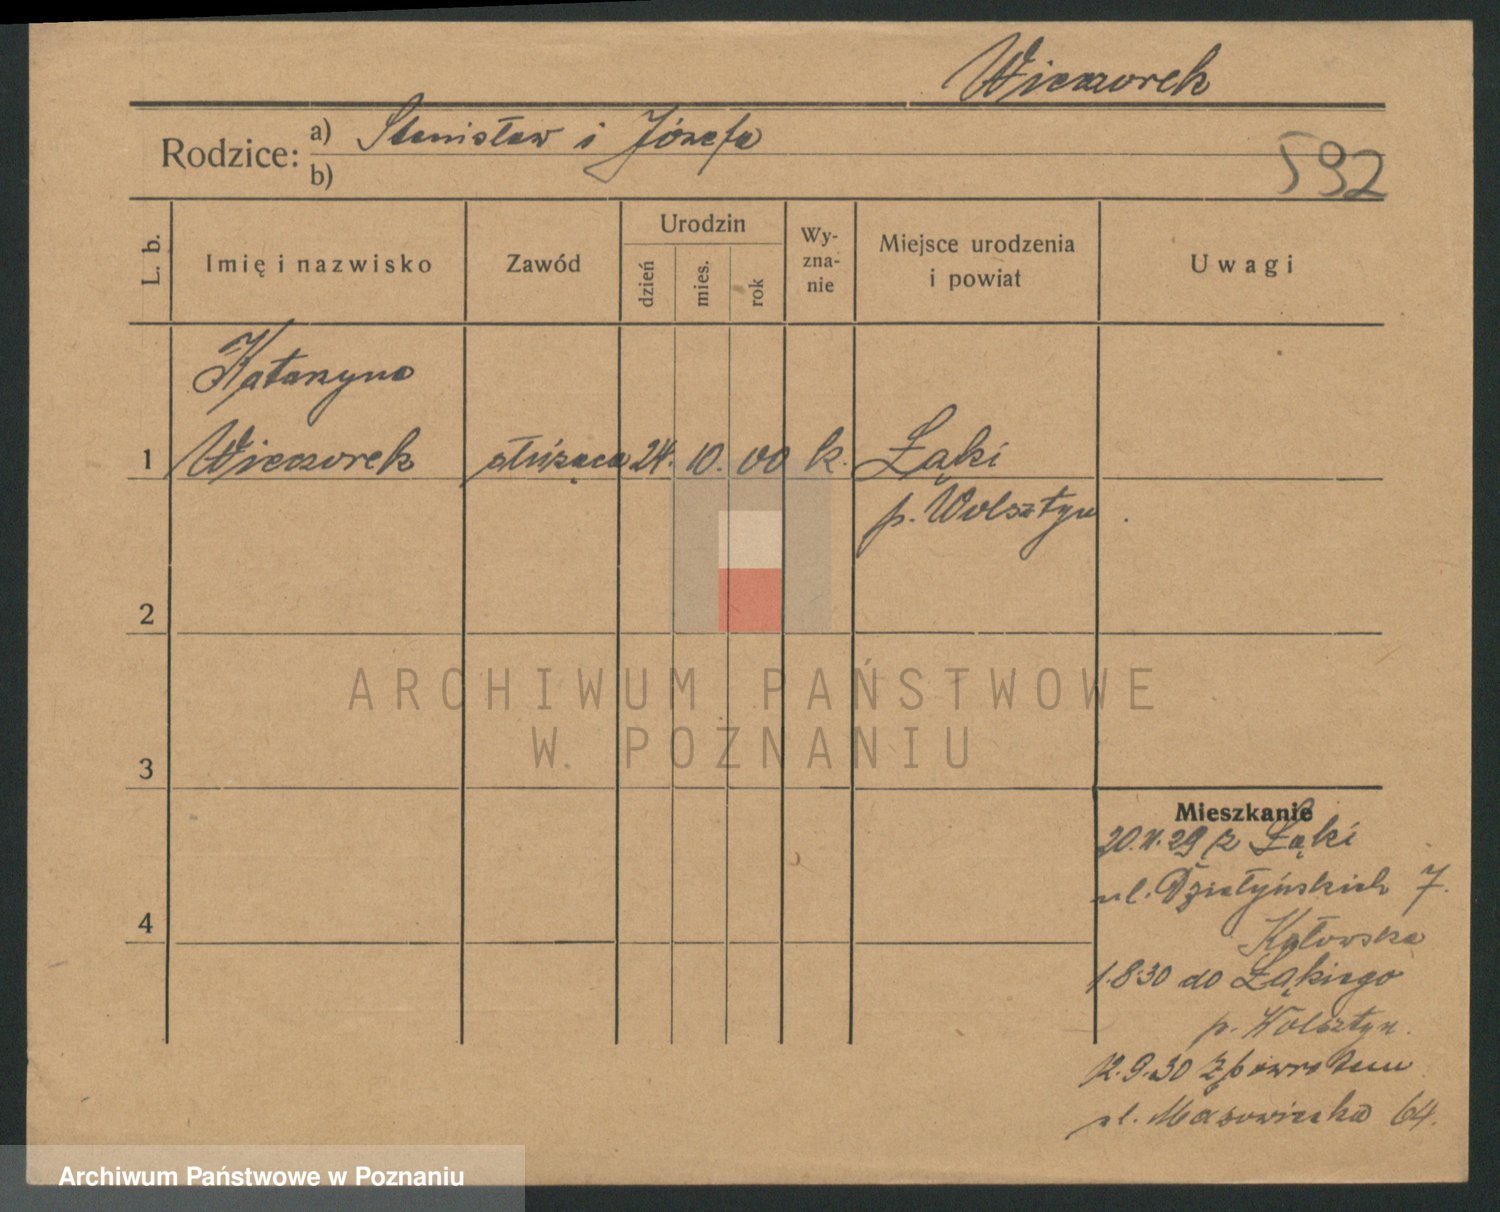 Wieczorek
Rodzice: a) Stanisław i Józefa
b)
592
L. b. Imię i nazwisko Zawód Urodzin dzień mies. rok Wyznanie Miejsce urodzenia i powiat Uwagi
Katarzyna
1 Wieczorek służąca 24. 10. 00 k. Łąki
p. Wolsztyn.
2
ARCHIWUM PAŃSTWOWE
W POZNANIU
3
Mieszkanie
29 z Łąki
ul. Działyńskich 7.
4
1.8.30 do Łąkiego
p. Wolsztyn.
12.9.30 z powrotem
ul. Mazowiecka 64.
Archiwum Państwowe w Poznaniu